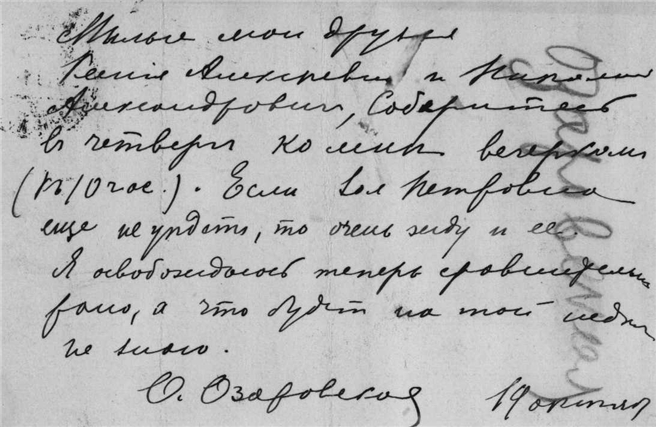 Милые мои друзья
Алексеевич и
Александрович, Соберитесь
в четверг ко мне вечерком
(къ 10 час.). Если Зоя Петровна
еще не уедетъ, то очень жду и ее.
Я освобождаюсь теперь сравнительно
рано, а что будетъ на той неделе
не знаю.
О. Озаровская 19 октября
Озаровская